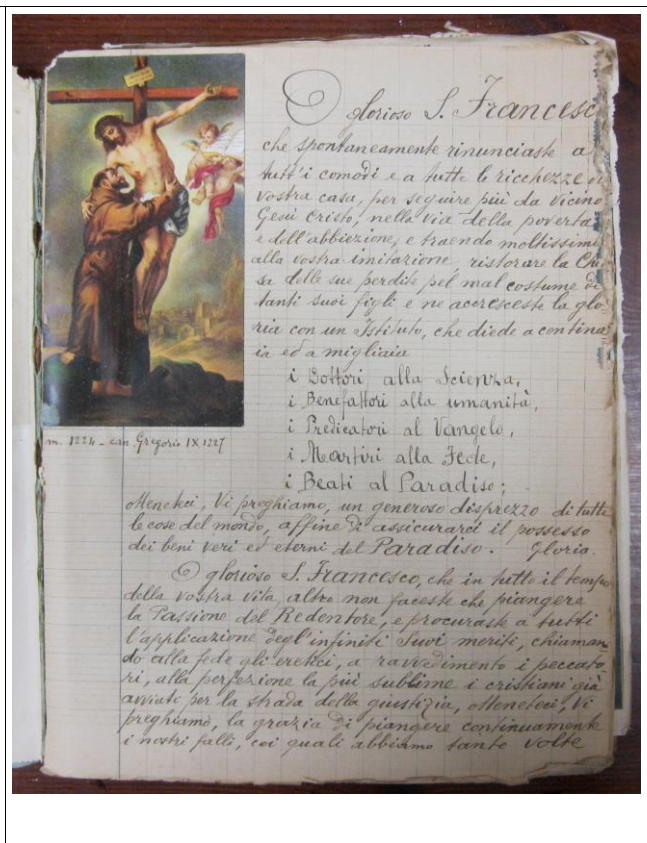 O glorioso S. Francesco
che spontaneamente rinunciaste a
tutt'i comodi e a tutte le ricchezze di
vostra casa, per seguire più da vicino
Gesù Cristo, nella via della povertà
e dell'abbiezione, e traendo moltissimi
alla vostra imitazione ristorare la Chie
sa delle sue perdite pel mal costume di
tanti suoi figli e ne accresceste la glo-
ria con un Istituto, che diede a contina
ia ed a migliaia
i Dottori alla Scienza,
i Benefattori alla umanità,
i Predicatori al Vangelo,
i Martiri alla Fede,
i Beati al Paradiso;
m. 1224 - can. Gregorio IX 1227
Otteneteci, Vi preghiamo, un generoso disprezzo di tutte
le cose del mondo, affine di assicurarci il possesso
dei beni veri ed eterni del Paradiso. Gloria.
O glorioso S. Francesco, che in tutto il tempo
della vostra vita, altro non faceste che piangere
la Passione del Redentore, e procuraste a tutti
l'applicazione degl'infiniti Suoi meriti, chiaman
do alla fede gli eretici, a ravvedimento i peccato
ri, alla perfezione la più sublime i cristiani già
avviati per la strada della giustizia, otteneteci, Vi
preghiamo, la grazia di piangere continuamente
i nostri falli, coi quali abbiamo tante volte